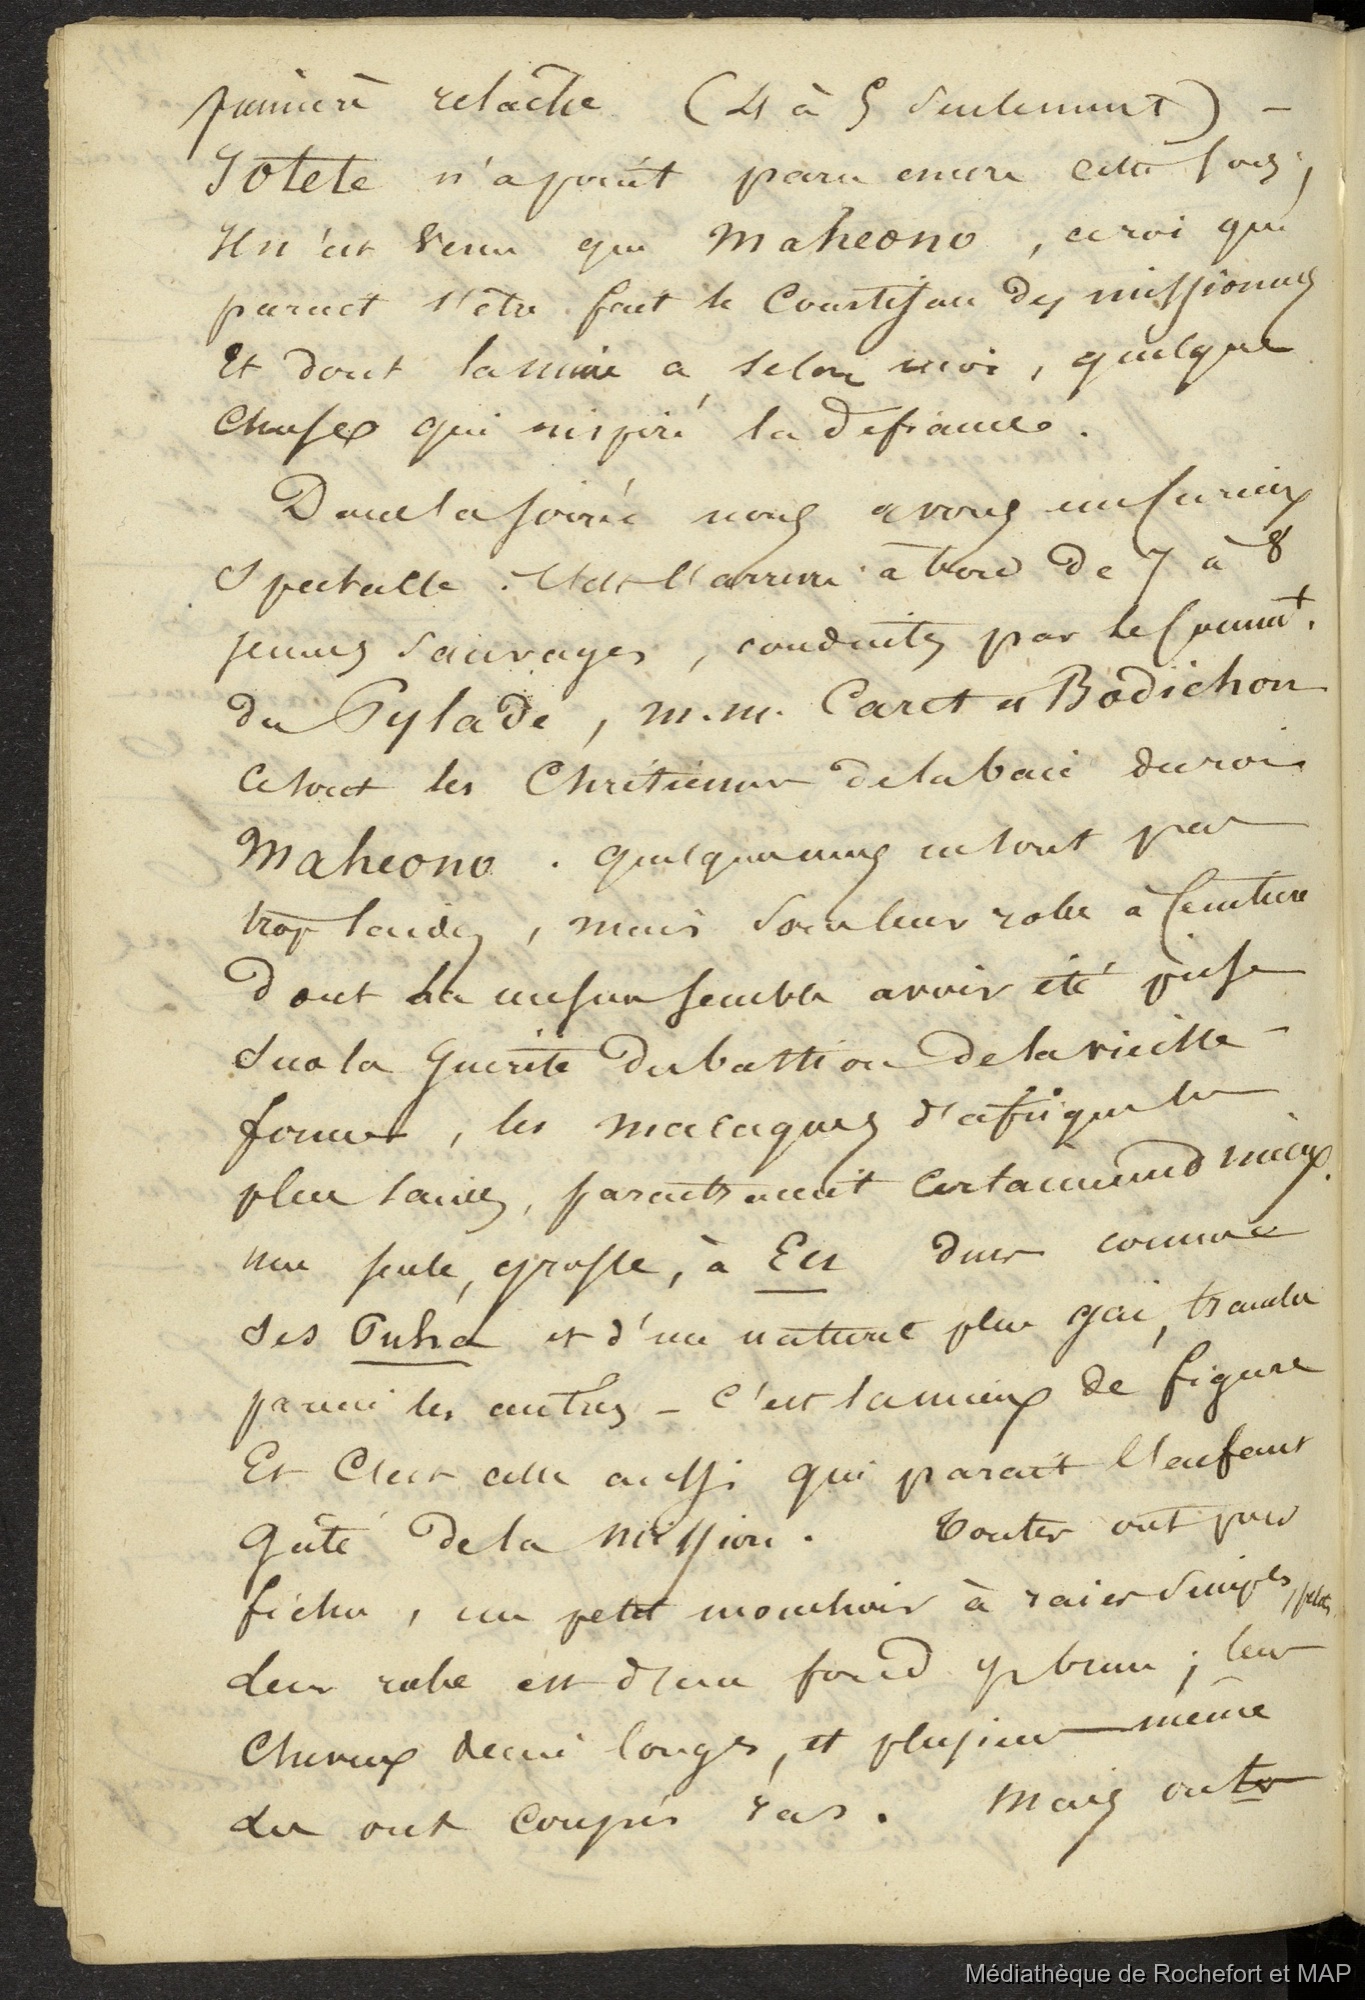 première relâche (4 à 5 seulement) –
Iotete n'a point paru encore cette fois ;
Il n'est venu que Maheono, ce roi qui
parait s'être fait le Courtisan des missionres
Et dont la mine a, selon moi, quelque
Chose qui inspire la defiance.
Dans la soirée nous avons un curieux
Spectacle. C'est l'arrivée à bord de 7 à 8
jeunes Sauvages, conduites par le Commt.
du Pylade, M.M. Caret et Bodichon
Ce sont les Chrétiennes de la baie du roi
Maheono. quelques unes ne sont pas
trop laides, mais sous leur robe à Ceinture
dont la mesure semble avoir été prise
sur la Guerite du bastion de la vieille
forme, les macaques d'afrique les
plus laides, paraitraient certainement mieux.
une seule, grosse, à Eu durs comme
des Puha et d'un naturel plus gai, tranche
parmi les autres – C'est la mieux de figure
Et C'est celle aussi qui parait l'enfant
Gâté de la Mission. Toutes ont pour
fichu, un petit mouchoir à raies Simples,
leur robe est d'un fond gs brun ; leurs
Cheveux demi longs, et plusieurs même
les ont coupés ras. Mais outre